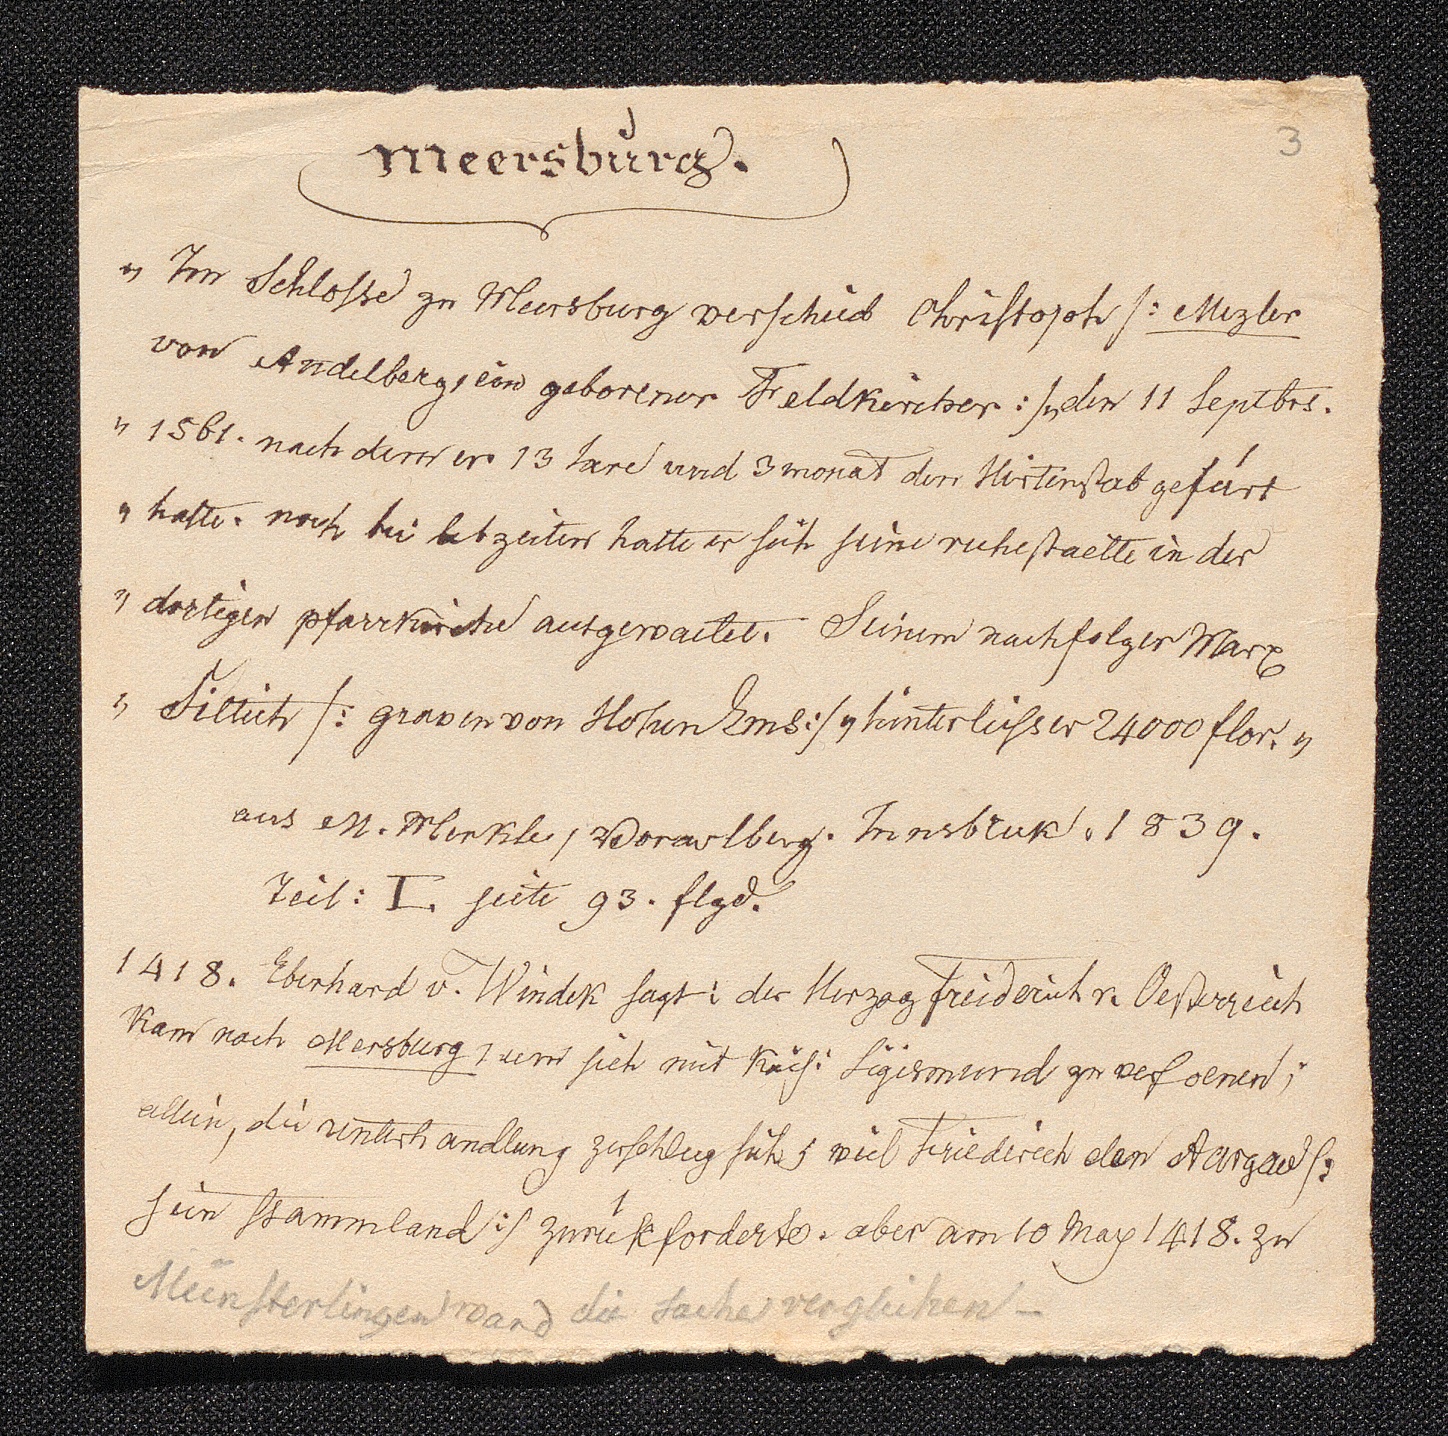 3
Meersburg.
„ Im Schlosse zu Meersburg verschied Christoph /: Mezler
von Andelberg, ein geborener Feldkircher :/ „ den 11 Septbrs.
„ 1561. nach dem er 13 Jare und 3 monat den Hirtenstab gefürt
„ hatte. noch bei lebzeiten hatte er sich seine ruhestaette in der
„ dortigen pfarrkirche ausgewaelet. Seinem nachfolger Marx
„ Sittich /: graven von Hohen Ems :/ „ hinterliess er 24000 flor. „
aus M. Merkle, Vorarlberg. Innsbruk. 1839.
Teil: I. seite 93. flgd.
1418. Eberhard v. Windek sagt: der Herzog Freiderich v. Oesterreich
kam nach Mersburg, um sich mit Kais: Sigismund zu versoenen;
allein, die unterhandlung zerschlug sich, weil Friederich den Aargau /:
sein stammland :/ zurükforderte. aber am 10 May 1418. zu
Münsterlingen ward die sache verglichen —